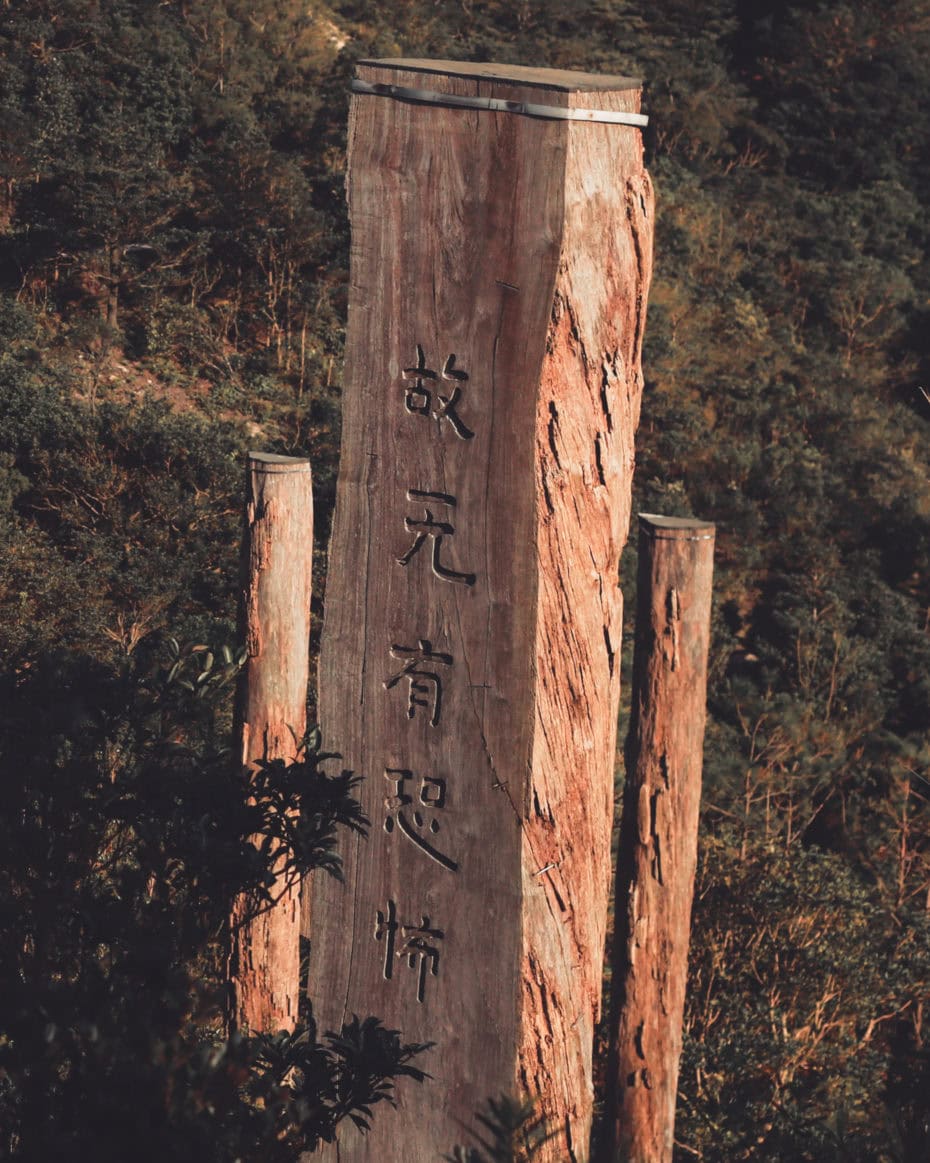 故无有恐怖